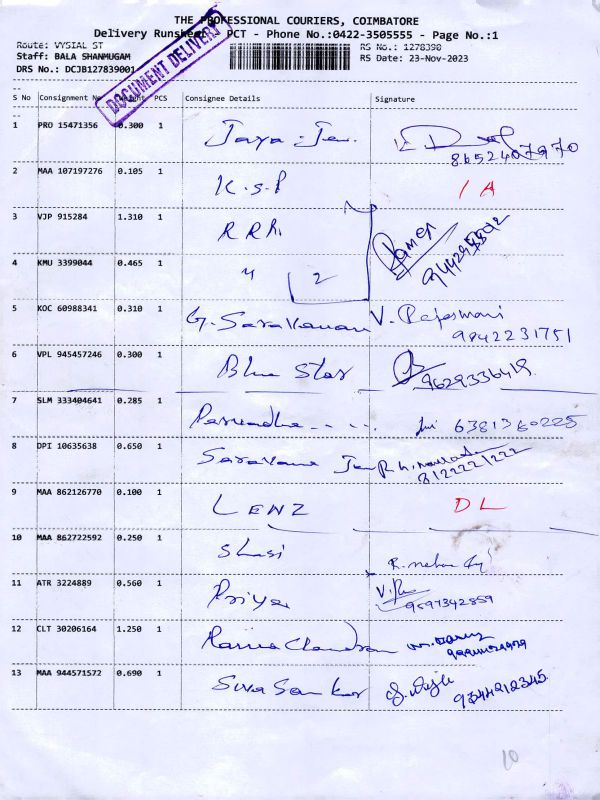 THE PROFESSIONAL COURIERS, COIMBATORE
Delivery Runsheet PCT - Phone No.:0422-3505555 - Page No.:1
Route: VYSIAL ST RS No.: 1278390
Staff: BALA SHANMUGAM RS Date: 23-Nov-2023
DRS No.: DCJB127839001
DOCUMENT DELIVERY
S No Consignment No Weight PCS Consignee Details Signature
1 PRO 15471356 0.300 1 Jaya
8652407970
2 MAA 107197276 0.105 1 K.S.P 1 A
3 VJP 915284 1.310 1 R R
4 KMU 3399044 0.465 1 2
5 KOC 60988341 0.310 1 G. Saravanan V. Rajeswari
9842231751
6 VPL 945457246 0.300 1 Blue Star
9629336419
7 SLM 333404641 0.285 1 6381360225
8 DPI 10635638 0.650 1 Saravana
8122221222
9 MAA 862126770 0.100 1 LENZ DL
10 MAA 862722592 0.250 1 Shasi
11 ATR 3224889 0.560 1 Priya
9597342859
12 CLT 30206164 1.250 1 Rama Chandran
13 MAA 944571572 0.690 1 Siva Sankar
9344212345
10